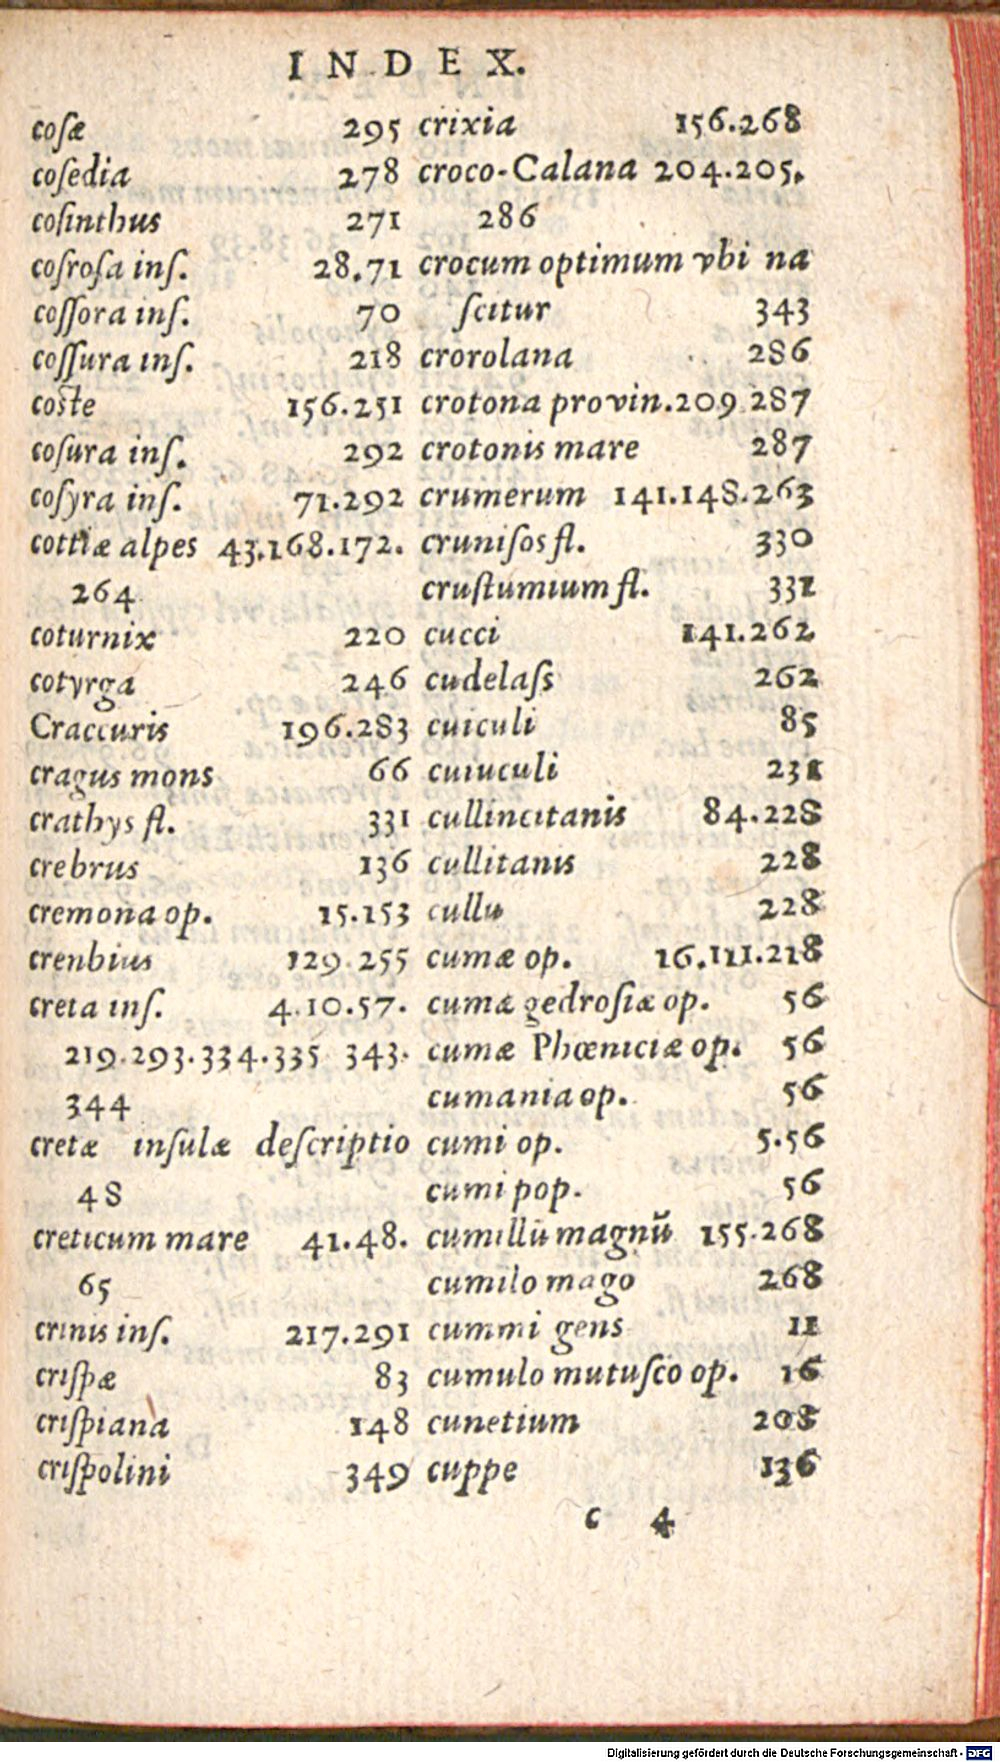 INDEX.
coſæ 295
coſedia 278
coſinthus 271
coſroſa inſ. 28.71
coſſora inſ. 70
coſſura inſ. 218
coſte 156.251
coſura inſ. 292
coſyra inſ. 71.292
cottiæ alpes 43.168.172.
264
coturnix 220
cotyrga 246
Craccuris 196.283
cragus mons 66
crathys fl. 331
crebrus 136
cremona op. 15.153
crenbius 129.255
creta inſ. 4.10.57.
219.293.334.335 343.
344
cretæ inſulæ deſcriptio
48
creticum mare 41.48.
65
crinis inſ. 217.291
criſpæ 83
criſpiana 148
criſpolini 349
crixia 156.268
croco-Calana 204.205.
286
crocum optimum vbi na
ſcitur 343
crorolana 286
crotona provin. 209 287
crotonis mare 287
crumerum 141.148.263
cruniſos fl. 330
cruſtumium fl. 331
cucci 141.262
cudelaſs 262
cuiculi 85
cuiuculi 231
cullincitanis 84.228
cullitanis 228
cullu 228
cumæ op. 16.111.218
cumæ gedroſiæ op. 56
cumæ Phœniciæ op. 56
cumania op. 56
cumi op. 5.56
cumi pop. 56
cumillū magnū 155.268
cumilo mago 268
cummi gens 11
cumulo mutuſco op. 16
cunetium 208
cuppe 136
c 4
Digitalisierung gefördert durch die Deutsche Forschungsgemeinschaft - DFG